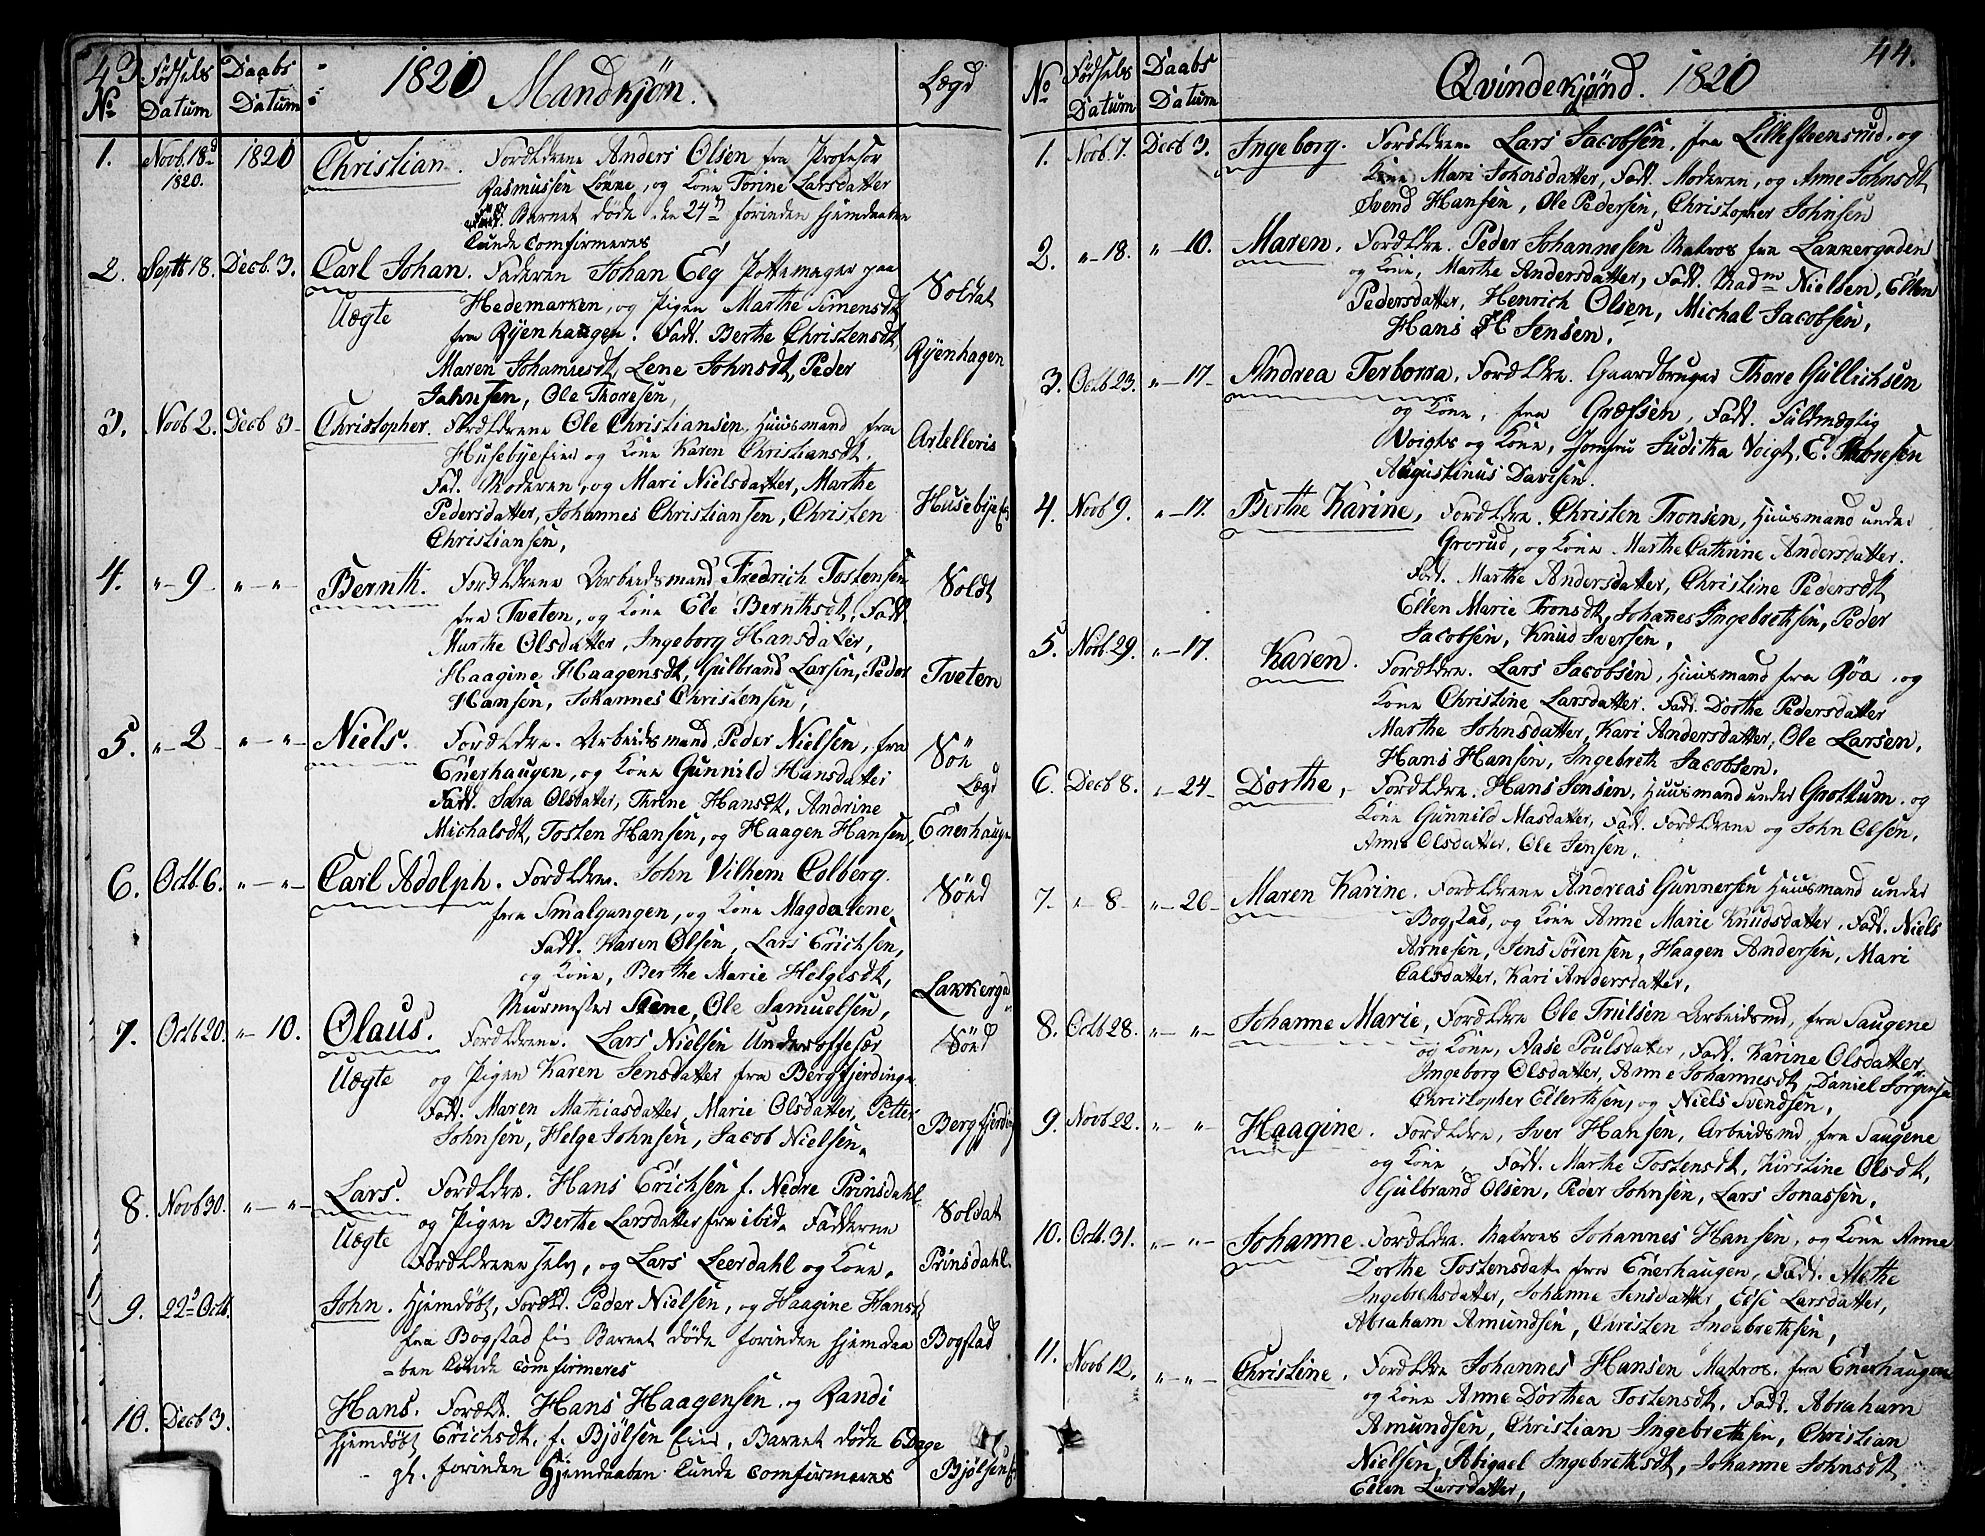 43 Fødsels Daabs 1820 Mandkjøn. Lægd
No Datum Datum
1. Novb. 18d 1820 Christian. Forældrene Anders Olsen fra Profesor
1820. Rasmussen Lønne, og Kone Torine Larsdatter
Barnet døde den 24d forinden Hjemdaaben
Kunde Comfirmeres
2. Septb 18. Decb. 3. Carl Johan. Faderen Johan Eeg Pottemager paa Soldat
Uægte Hedemarken, og Pigen Marthe Simensdt
fra Ryenhaugen. Fadd. Berthe Christensdt, Ryenhagen
Maren Johannesdt, Lene Johnsdt, Peder
Jahnsen, Ole Thoresen,
3. Novb 2. Decb 3- Christopher. Forældrene Ole Christiansen, Huusmand fra Artelleris
Husebyeeier og Kone Karen Christiansdt.
Fad. Moderen, og Mari Nielsdatter, Marthe Husebye
Pedersdatter, Johannes Christiansen, Christen
Christiansen,
4. "- 9 - "- "- Bernth. Forældrene Arbeidsmand Fredrich Tostensen Soldt
fra Tveten, og Kone Ele Bernthsdt, Fadd.
Marthe Olsdatter, Ingeborg Hansdatter,
Haagine Haagensdt, Gulbrand Larsen, Peder Tveten
Hansen, Johannes Christensen,
5. "- 2 "- "- Niels. Forældre. Arbeidsmand Peder Nielsen, fra Søn
Enerhaugen, og Kone Gunnild Hansdatter Lægd
Fadd. Sara Olsdatter, Thrine Hansdt, Andrine
Michalsdt, Tosten Hansen, og Haagen Hansen, Enerhauge
6. Octb. 6. "- "- Carl Adolph. Forældre. John Vilhem Colberg. Sønd
fra Smalgangen, og Kone Magdalene
Fadd. Karen Olsen, Lars Erichsen,
og Kone, Berthe Marie Helgesdt, Lakkerga
Murmester Stene, Ole Samuelsen,
7. Octb 20. "- 10. Olaus. Forældrene. Lars Nielsen Underoffesær Sønd
Uægte og Pigen Karen Jensdatter fra Bergfjerdinge
Fadd. Maren Mathiasdatter, Marie Olsdatter, Petter Bergfjerding
Johnsen, Helge Johnsen, Jacob Nielsen.
8. Novb 30. "- "- Lars. Forældre. Hans Erichsen f. Nedre Prinsdahl Soldat
Uægte og Pigen Berthe Larsdatter fra ibid. Fadderne
Forældrene selv, og Lars Leerdahl og Kone. Prinsdahl.
9. 22d Octb. John. Hjemdøbt, Foræld. Peder Nielsen, og Haagine Hansd
fra Bogstad Eie Barnet døde forinden Hjemdaa Bogstad
=ben Kunde Comfirmeres
10. Decb 3. Hans. Foræld. Hans Haagensen og Randi
Hjemdøbt Erichsdt, f. Bjølsen Eie, Barnet døde 6 Dage
gl. forinden Hjemdaaben Kunde Comfirmeres Bjølsen
No Fødsels Daabs Qvindekjønd. 1820 44.
Datum Datum
1. Novb. 7. Decb 3. Ingeborg. Forældrene Lars Jacobsen, fra Lillesteensrud, og
Kone Mari Johnsdatter, Fadd. Moderen, og Anne Johnsdt
Svend Hansen, Ole Pedersen, Christopher Johnsen
2. "- 18. "- 10. Maren. Forældre. Peder Johannesen Matros fra Lakkergaden
og Kone, Marthe Andersdatter, Fadd. Madm Nielsen, Ellen
Pedersdatter, Henrich Olsen, Michal Jacobsen,
Hans H Jensen,
3. Octb 23. "- 17- Andrea Terborra, Forældre. Gaardbruger Thore Gullichsen
og Kone, fra Græfsen, Fadd. Fuldmægtig
Voigts og Kone, Jomfru Juditha Voigt, E. Thoresen
Augustinus Davisen.
4. Novb 9. "- 17. Berthe Karine, Forældre. Christen Tronsen, Huusmand under
Grorud, og Kone Marthe Cathrine Andersdatter.
Fadd. Marthe Andersdatter, Christine Pedersdt
Ellen Marie Tronsdt, Johanes Ingebrethsen, Peder
Jacobsen, Knud Iversen,
5. Novb. 29. "- 17. Karen. Forældre. Lars Jacobsen, Huusmand fra Røa, og
Kone Christine Larsdatter. Fadd. Dorthe Pedersdatter
Marthe Johnsdatter, Kari Andersdatter, Ole Larsen,
Hans Hansen, Ingebreth Jacobsen.
6. Decb 8. "- 24- Dorthe, - Forældre. Hans Jonsen, Huusmand under Grottum. og
Kone Gunnild Masdatter, Fadd. Forældrene og John Olsen,
Anne Olsdatter, Ole Jensen.
7. "- 8 - "- 26- Maren Karine. Forældrene Andreas Gunnersen Huusmand under
Bogstad, og Kone Anne Marie Knudsdatter, Fadd. Niels
Arnesen, Jens Sørensen, Haagen Andersen, Mari
Calsdatter, Kari Andersdatter,
8. Octb 28. "- "- Johanne Marie, Forældre Ole Trulsen Arbeidsmd, fra Saugene
og Kone, Aase Poulsdatter, Fadd. Karine Olsdatter
Ingeborg Olsdatter, Anne Johannesdt, Daniel Jorgensen
Christopher Ellerthsen, og Niels Svendsen,
9. Novb 22. "- "- Haagine. Forældre, Iver Hansen, Arbeidsmd, fra Saugene
og Kone, Fadd. Marthe Tostensdt, Kirstine Olsdt,
Gulbrand Olsen, Peder Johnsen, Lars Jonassen,
10. Octb. 31. "- "- Johanne. Forældre. Matroes Johannes Hansen, og Kone Anne
Dorthe Tostensdat. fra Enerhaugen, Fadd. Alethe
Ingebrethsdatter, Johanne Jensdatter, Else Larsdatter,
Abraham Amundsen, Christen Ingebrethsen,
11. Novb 12. "- "- Christine. Forældre Johannes Hansen Matros, fra Enerhaugen
og Kone Anne Dorthea Tostensdt. Fadd. Abraham
Amundsen, Christian Ingebrethsen, Christian
Nielsen, Abigael Ingebrethsdt, Johanne Johnsdt
Ellen Larsdatter,